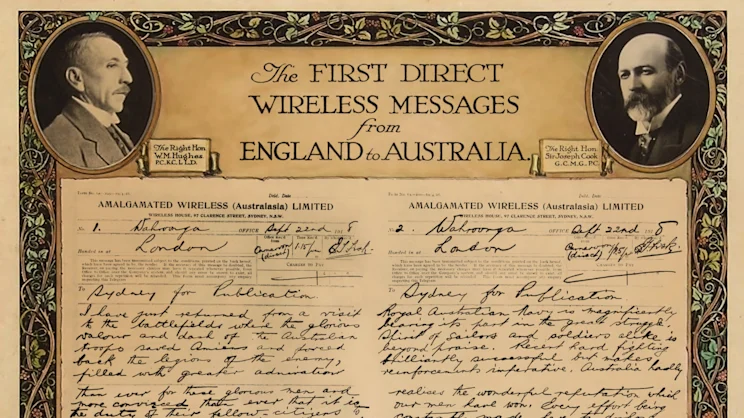 The FIRST DIRECT
WIRELESS MESSAGES
from
ENGLAND to AUSTRALIA.
The Right Hon.
W.M. Hughes
P.C. K.C. LL.D.
The Right Hon.
Sir Joseph Cook
G.C.M.G. P.C.
AMALGAMATED WIRELESS (Australasia) LIMITED
WIRELESS HOUSE, 97 CLARENCE STREET, SYDNEY, N.S.W.
No. 1. Wahroonga OFFICE Sept 22nd 1918
Handed in at London
Carnarvon
(direct)
1.15
CHARGES TO PAY
To Sydney for Publication
I have just returned from a visit
to the battlefields where the glorious
valour and dash of the Australian
troops saved Amiens and forced
back the legions of the enemy,
filled with greater admiration
than ever for these glorious men and
more convinced than ever that it is
the duty of their fellow-citizens to
AMALGAMATED WIRELESS (Australasia) LIMITED
WIRELESS HOUSE, 97 CLARENCE STREET, SYDNEY, N.S.W.
No. 2. Wahroonga OFFICE Sept 22nd 1918
Handed in at London
Carnarvon
(direct)
CHARGES TO PAY
To Sydney for Publication
Royal Australian Navy is magnificently
bearing its part in the great struggle.
Spirit of sailors and soldiers alike is
beyond praise. Recent hard fighting
brilliantly successful but makes
reinforcements imperative. Australia hardly
realises the wonderful reputation which
our men have won. Every effort being